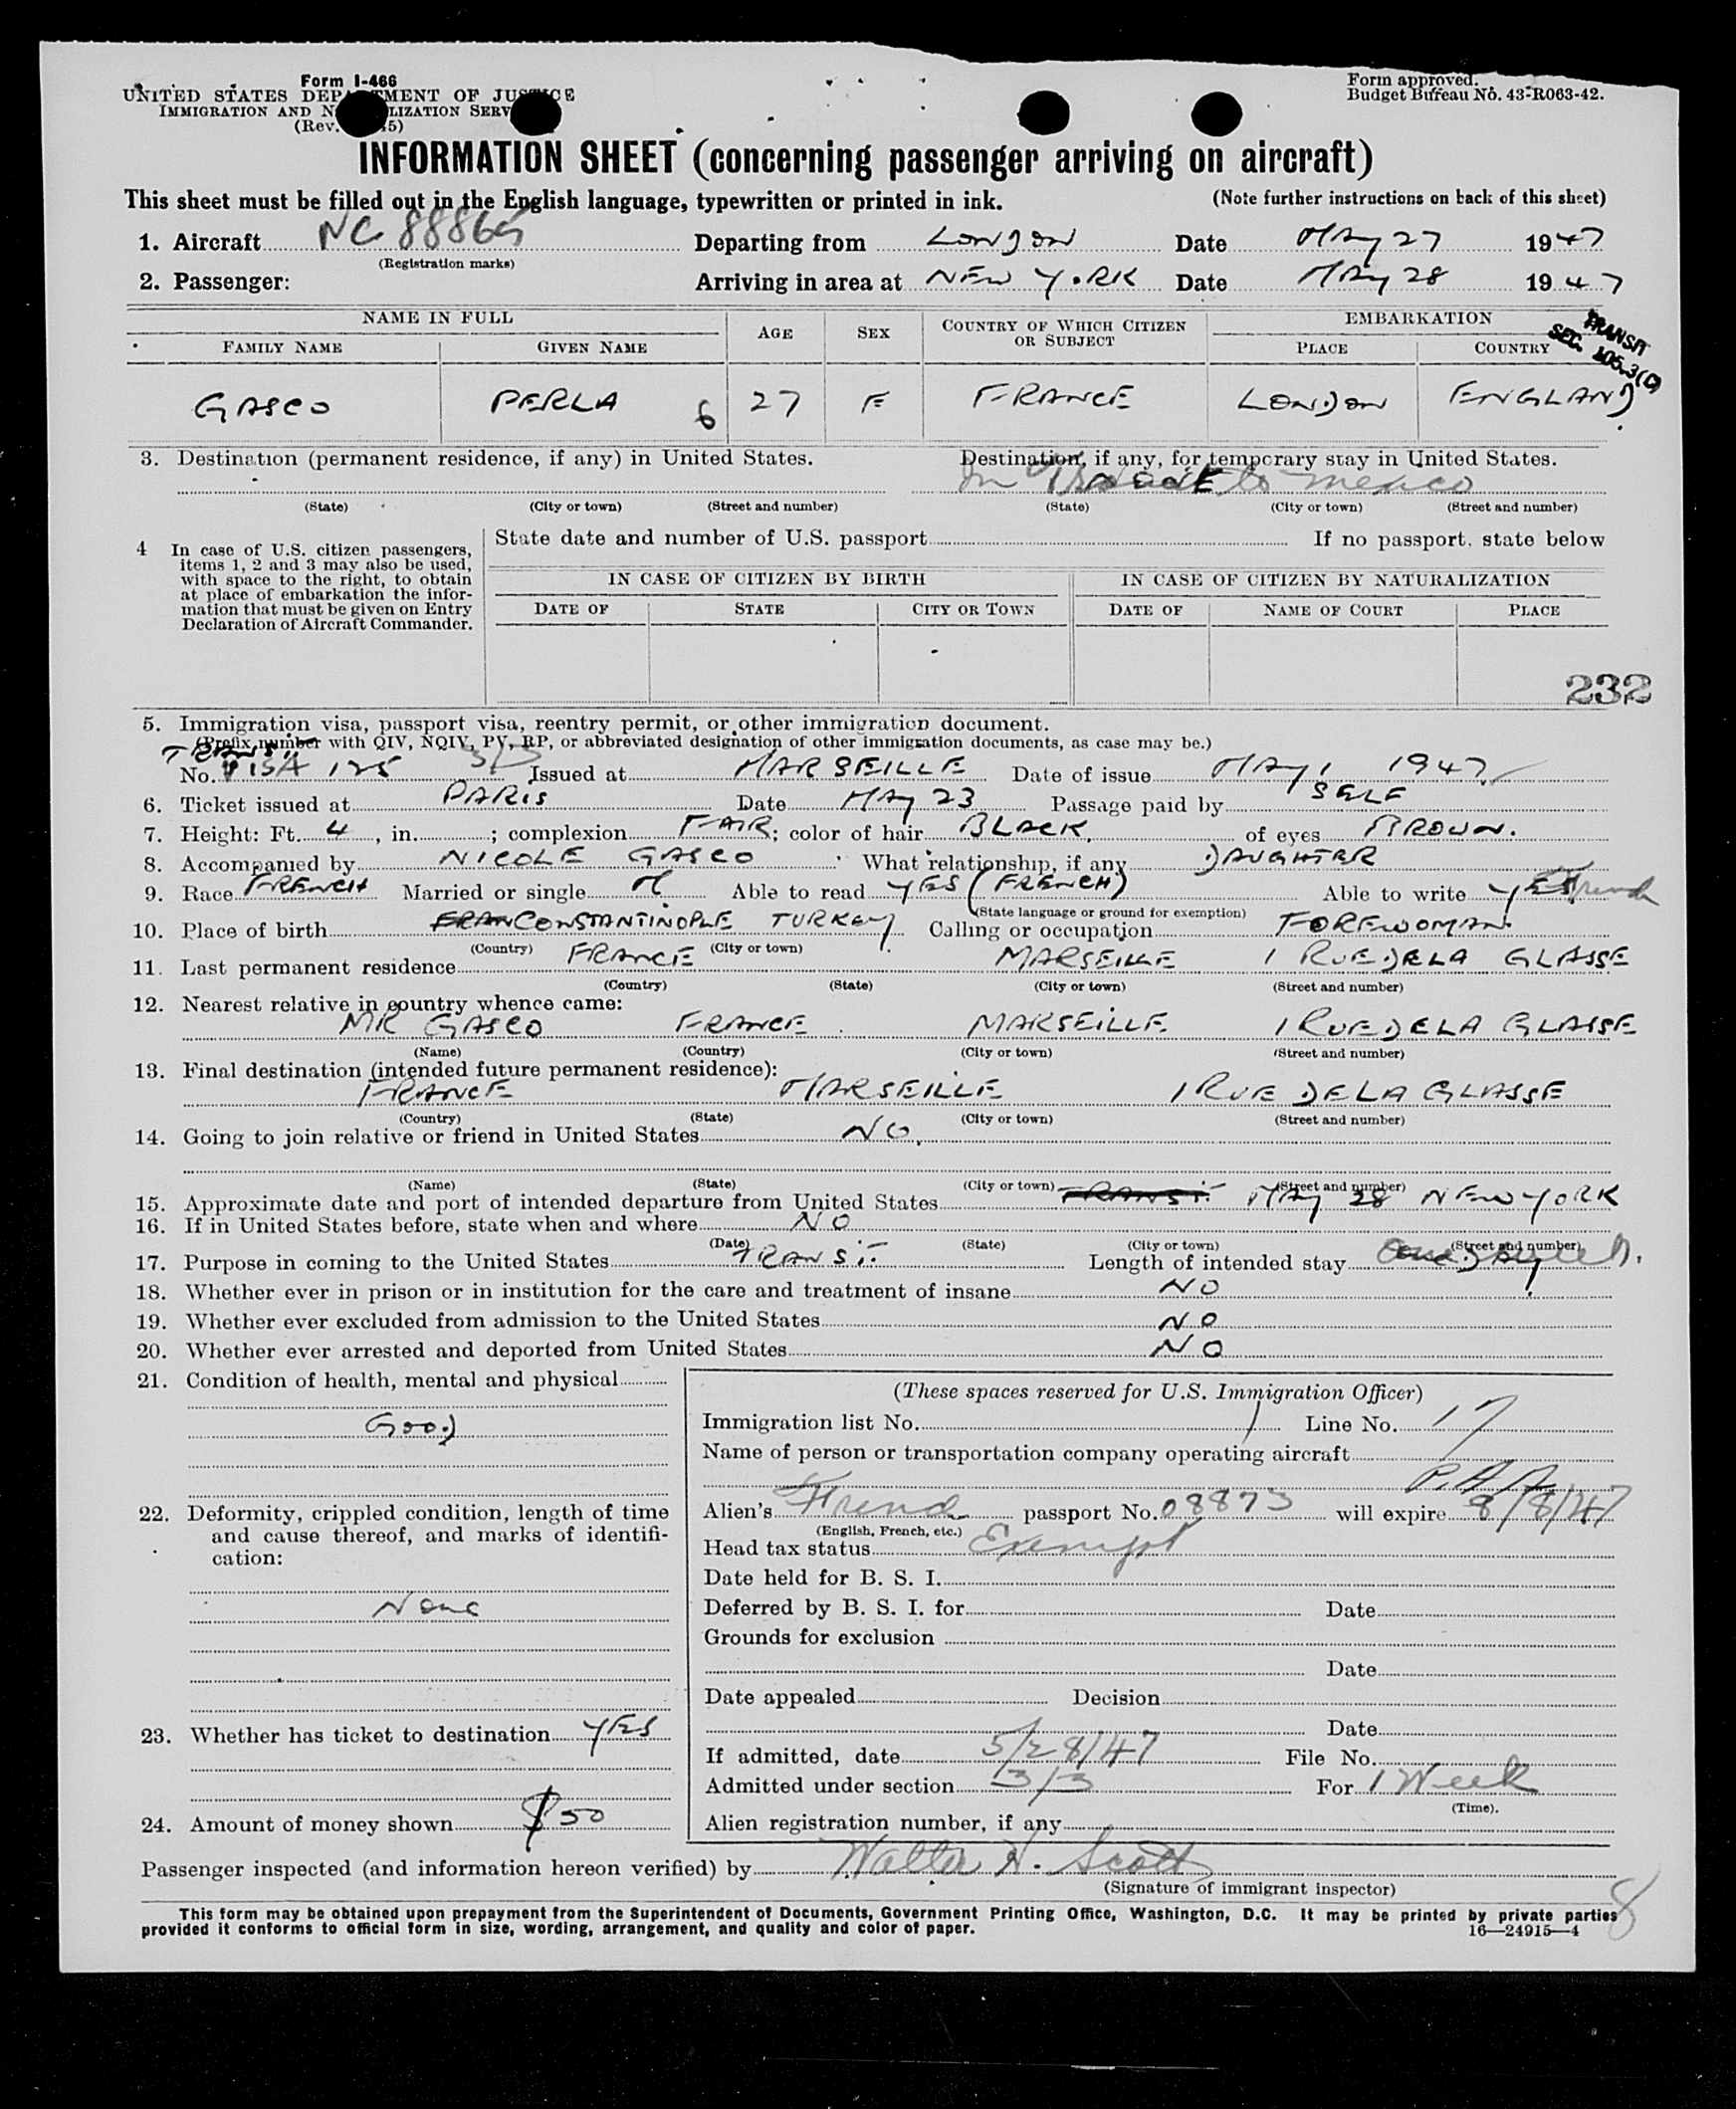 Form I-466
UNITED STATES DEPARTMENT OF JUSTICE
IMMIGRATION AND NATURALIZATION SERVICE
(Rev. 5)
Form approved.
Budget Bureau No. 43-R063-42.
INFORMATION SHEET (concerning passenger arriving on aircraft)
This sheet must be filled out in the English language, typewritten or printed in ink. (Note further instructions on back of this sheet)
1. Aircraft NC 88865 Departing from LONDON Date MAY 27 1947
(Registration marks)
2. Passenger: Arriving in area at NEW YORK Date MAY 28 1947
TRANSIT
SEC. 105.3(C)
NAME IN FULL AGE SEX COUNTRY OF WHICH CITIZEN OR SUBJECT EMBARKATION
FAMILY NAME GIVEN NAME PLACE COUNTRY
GASCO PERLA 6 27 F FRANCE LONDON ENGLAND
3. Destination (permanent residence, if any) in United States. Destination, if any, for temporary stay in United States.
In to Mexico
(State) (City or town) (Street and number) (State) (City or town) (Street and number)
4 In case of U.S. citizen passengers, items 1, 2 and 3 may also be used, with space to the right, to obtain at place of embarkation the information that must be given on Entry Declaration of Aircraft Commander.
State date and number of U.S. passport If no passport, state below
IN CASE OF CITIZEN BY BIRTH IN CASE OF CITIZEN BY NATURALIZATION
DATE OF STATE CITY OR TOWN DATE OF NAME OF COURT PLACE
232
5. Immigration visa, passport visa, reentry permit, or other immigration document.
(Prefix number with QIV, NQIV, PV, RP, or abbreviated designation of other immigration documents, as case may be.)
TRANSIT
No. VISA 125 3/3 Issued at MARSEILLE Date of issue MAY 1 1947
6. Ticket issued at PARIS Date MAY 23 Passage paid by SELF
7. Height: Ft. 4, in. ; complexion FAIR; color of hair BLACK of eyes BROWN.
8. Accompanied by NICOLE GASCO What relationship, if any DAUGHTER
9. Race FRENCH Married or single M Able to read YES (FRENCH) Able to write YES French
(State language or ground for exemption)
10. Place of birth FRAN CONSTANTINOPLE TURKEY Calling or occupation FOREWOMAN
(Country) (City or town)
11. Last permanent residence FRANCE MARSEILLE 1 RUE DE LA GLASSE
(Country) (State) (City or town) (Street and number)
12. Nearest relative in country whence came:
MR GASCO FRANCE MARSEILLE 1 RUE DE LA GLASSE
(Name) (Country) (City or town) (Street and number)
13. Final destination (intended future permanent residence):
FRANCE MARSEILLE 1 RUE DE LA GLASSE
(Country) (State) (City or town) (Street and number)
14. Going to join relative or friend in United States NO.
(Name) (State) (City or town) (Street and number)
15. Approximate date and port of intended departure from United States TRANSIT MAY 28 NEW YORK
16. If in United States before, state when and where NO
(Date) (State) (City or town) (Street and number)
17. Purpose in coming to the United States TRANSIT Length of intended stay
18. Whether ever in prison or in institution for the care and treatment of insane NO
19. Whether ever excluded from admission to the United States NO
20. Whether ever arrested and deported from United States NO
21. Condition of health, mental and physical
GOOD
22. Deformity, crippled condition, length of time and cause thereof, and marks of identification:
None
23. Whether has ticket to destination YES
24. Amount of money shown $50
(These spaces reserved for U.S. Immigration Officer)
Immigration list No. 1 Line No. 17
Name of person or transportation company operating aircraft
P.A.A.
Alien's French passport No. 08873 will expire 8/8/47
(English, French, etc.)
Head tax status Exempt
Date held for B. S. I.
Deferred by B. S. I. for Date
Grounds for exclusion
Date
Date appealed Decision
Date
If admitted, date 5/28/47 File No.
Admitted under section 3/3 For 1 Week
(Time).
Alien registration number, if any
Passenger inspected (and information hereon verified) by Walter H. Scott
(Signature of immigrant inspector)
8
This form may be obtained upon prepayment from the Superintendent of Documents, Government Printing Office, Washington, D.C. It may be printed by private parties
provided it conforms to official form in size, wording, arrangement, and quality and color of paper. 16—24915—4